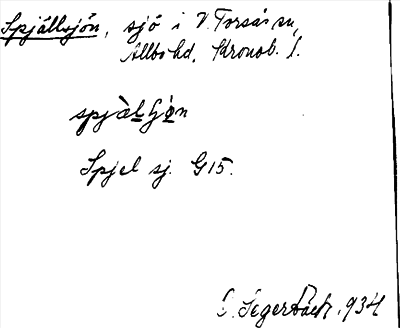 Spjällsjön, sjö i V. Torsås sn,
Allbo hd, Kronob. l.
spjàlʃö̀n
Spjel sj. G15.
Segerbäck, 934